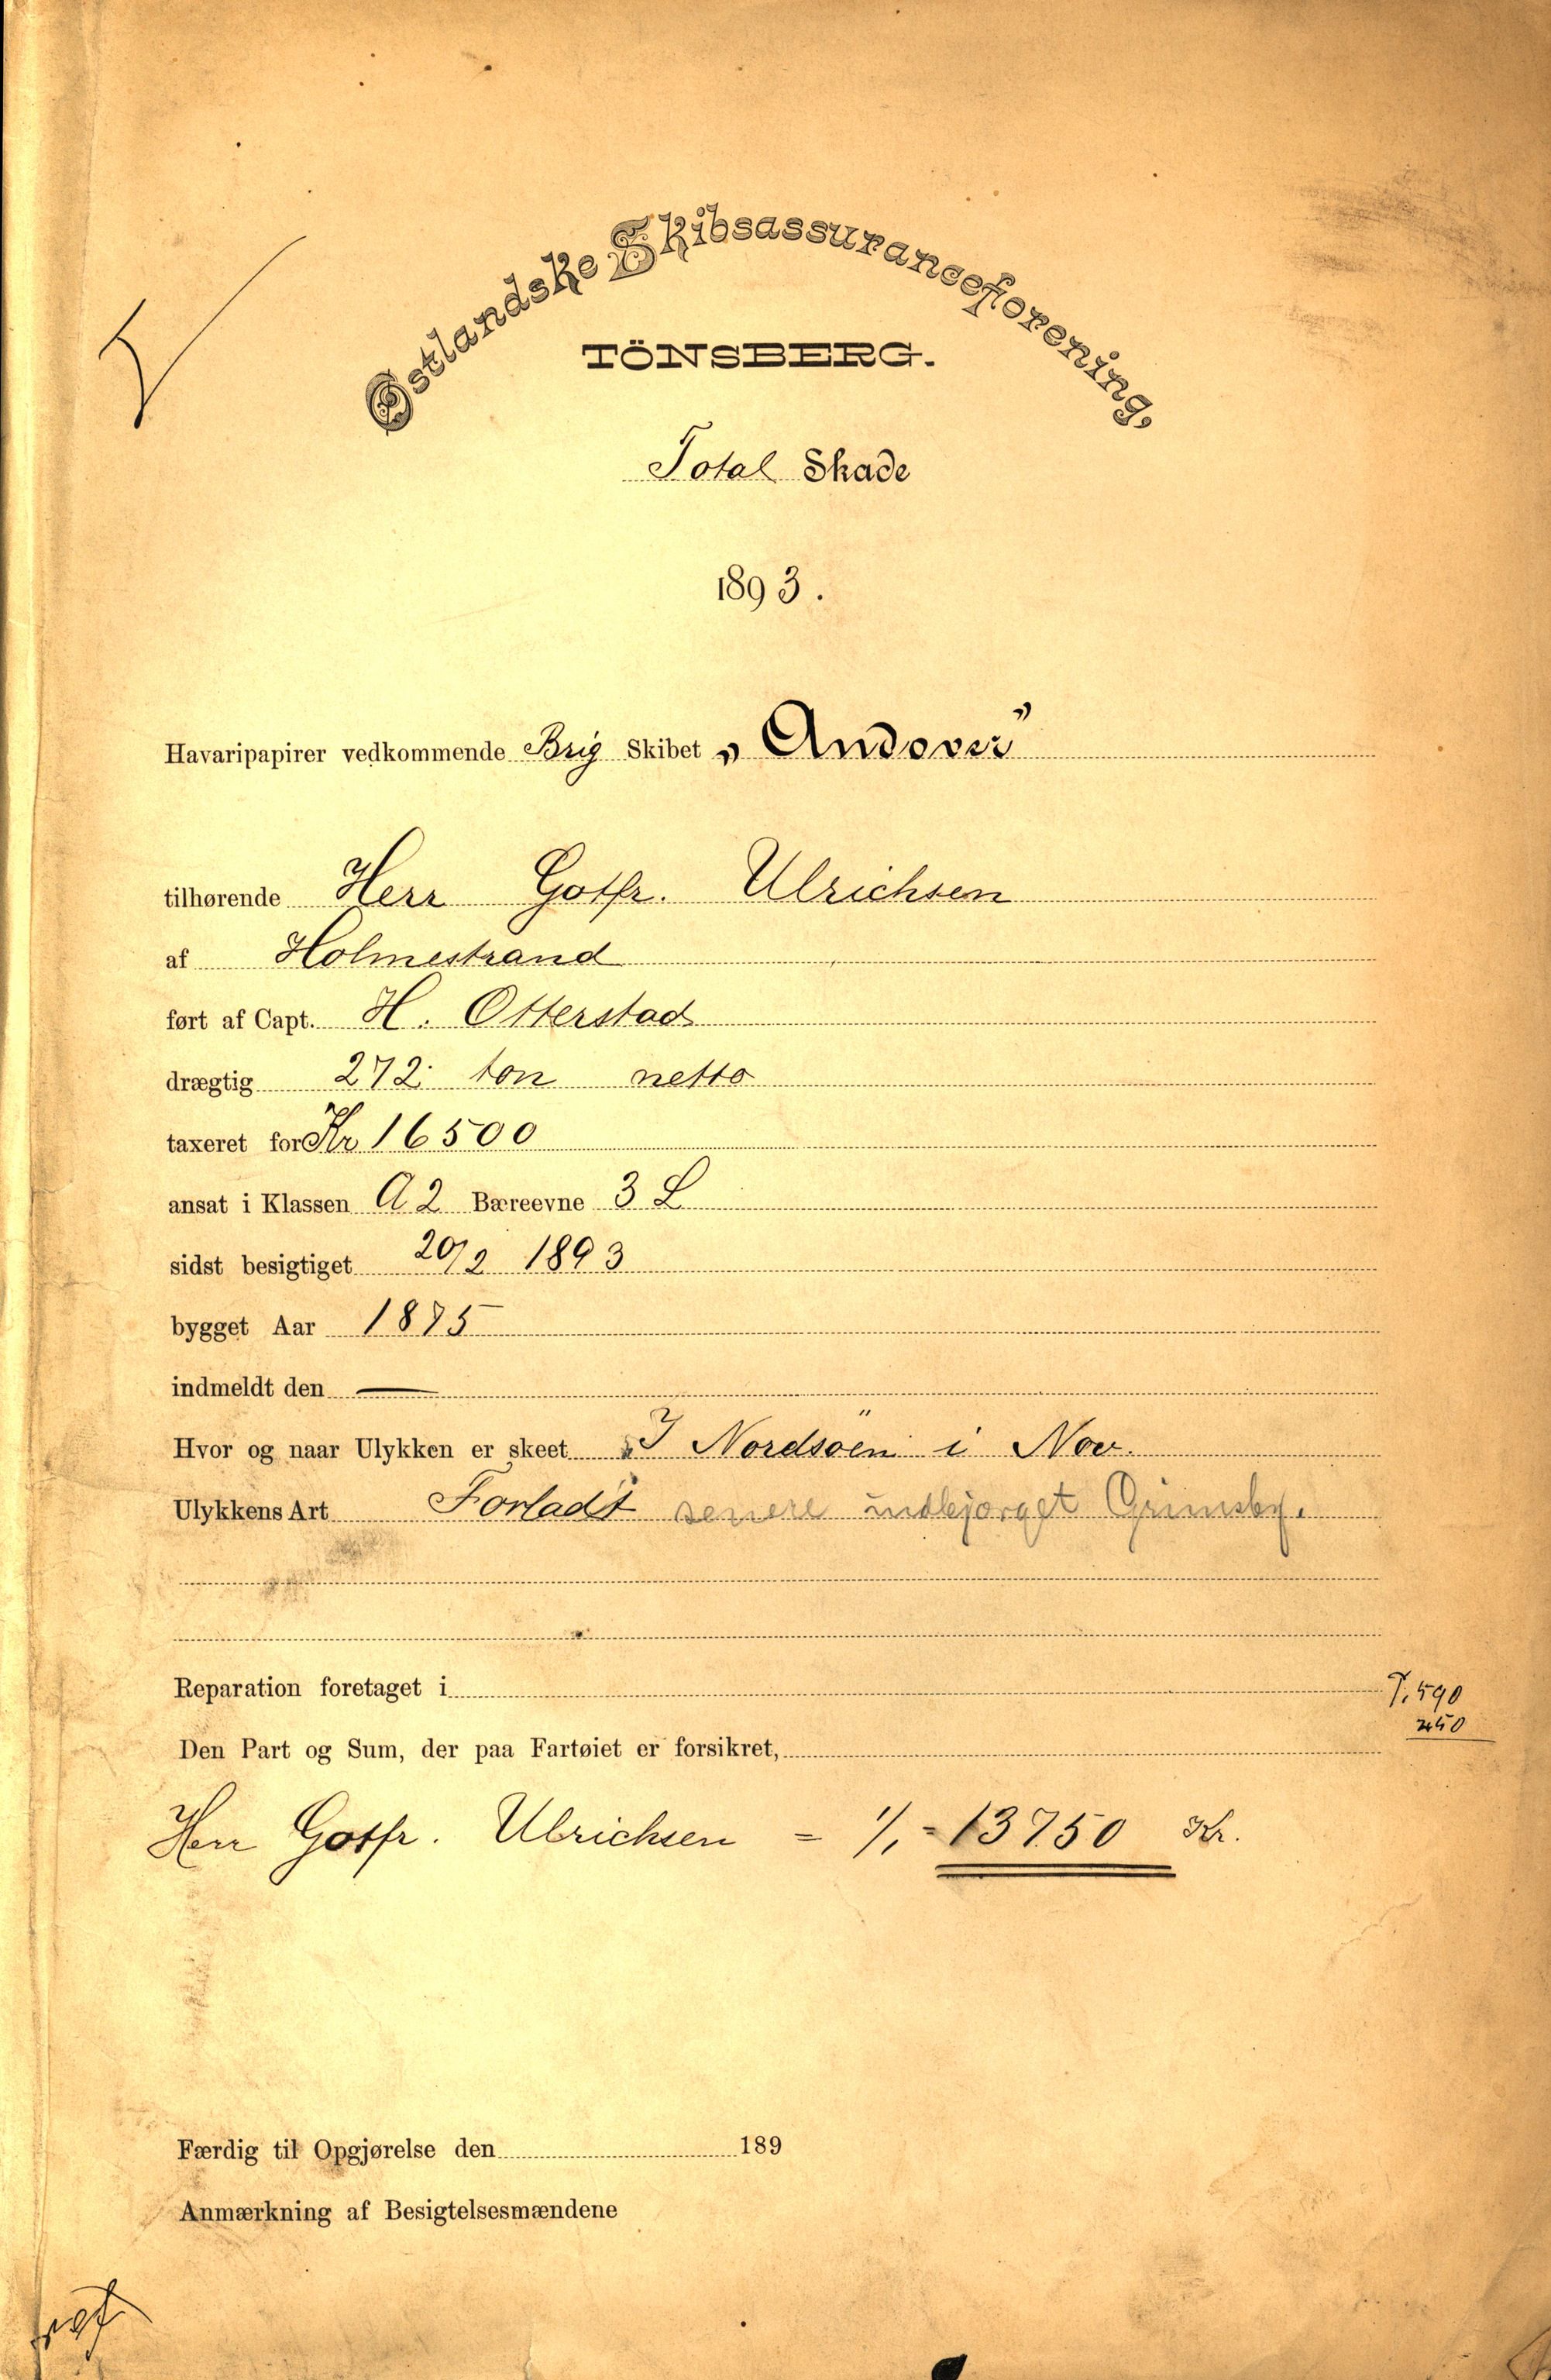 Østlandske Skibsassuranceforening,
TÖNSBERG.
Total Skade
1893.
Havaripapirer vedkommende Brig Skibet „Andover”
tilhørende Herr Gotfr. Ulrichsen
af Holmestrand
ført af Capt. H. Otterstad
drægtig 272 ton netto
taxeret for Kr 16500
ansat i Klassen A 2 Bæreevne 3 L
sidst besigtiget 20/2 1893
bygget Aar 1875
indmeldt den —
Hvor og naar Ulykken er skeet I Nordsöen i Nov.
Ulykkens Art Forladt senere indbjerget Grimsby.
Reparation foretaget i
Den Part og Sum, der paa Fartøiet er forsikret,
Herr Gotfr. Ulrichsen = 1/1 = 13750 Kr.
Færdig til Opgjørelse den 189
Anmærkning af Besigtelsesmændene